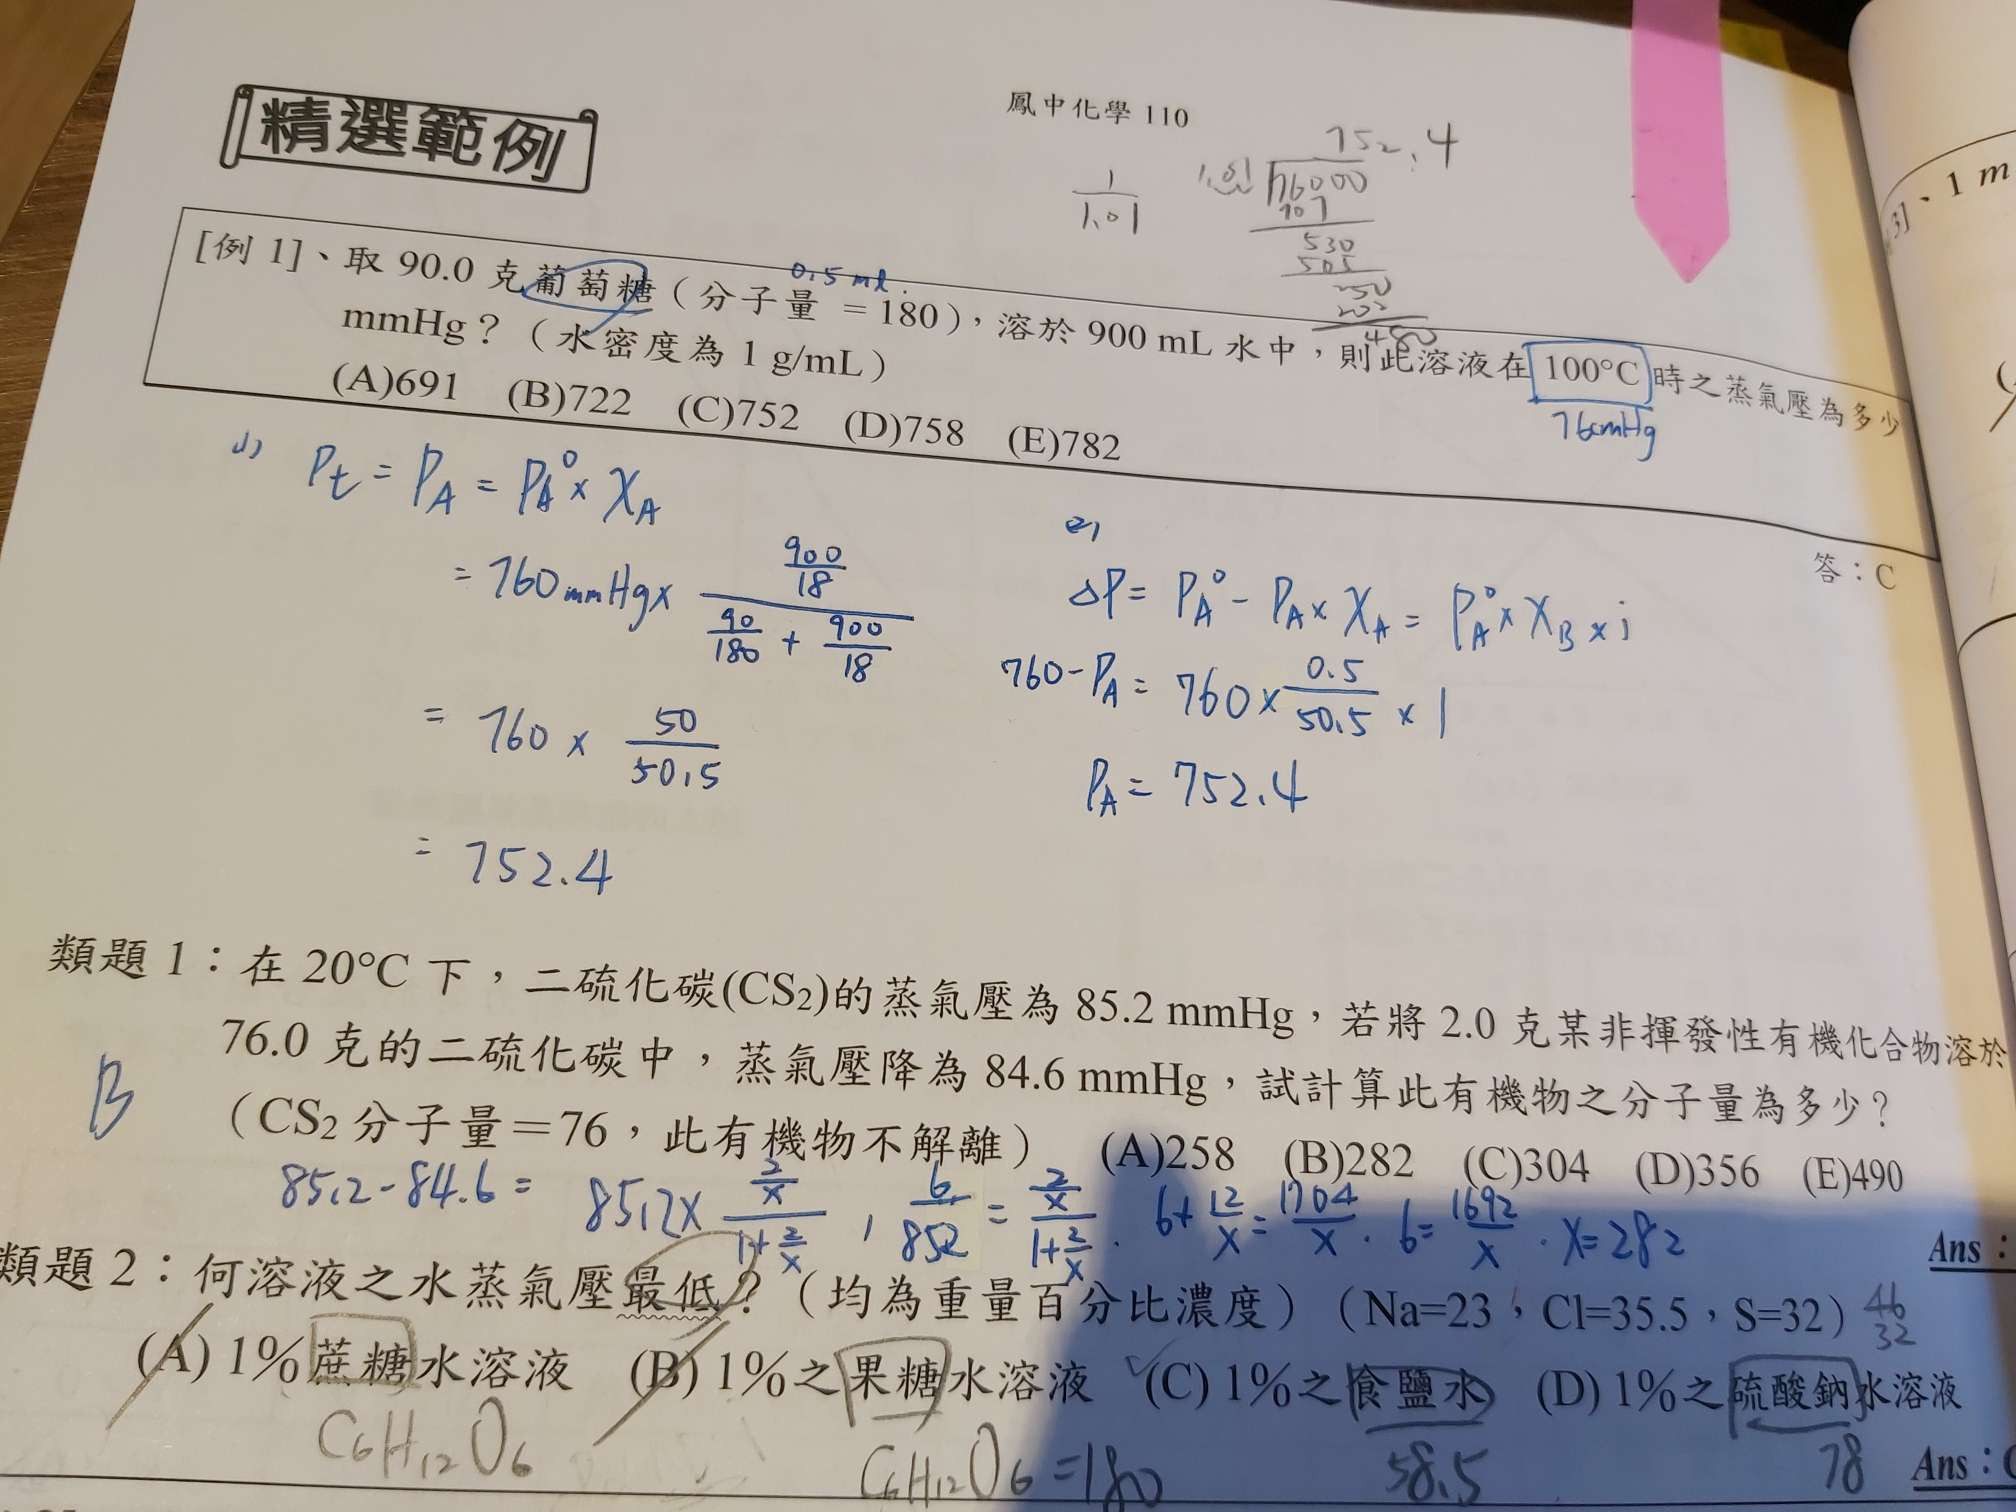 鳳中化學 110
精選範例
1/1.01
752.4
76000
707
530
505
250
202
480
[例 1]、取 90.0 克葡萄糖（分子量 =180），溶於 900 mL 水中，則此溶液在 100°C 時之蒸氣壓為多少
0.5 ml.
mmHg？（水密度為 1 g/mL）
76cmHg
(A)691 (B)722 (C)752 (D)758 (E)782
答：C
(1) Pt = PA = PA° × XA
= 760mmHg × (900/18)/(90/180 + 900/18)
= 760 × 50/50.5
= 752.4
(2)
ΔP = PA° - PA × XA = PA° × XB × i
760 - PA = 760 × 0.5/50.5 × 1
PA = 752.4
類題 1：在 20°C 下，二硫化碳(CS₂)的蒸氣壓為 85.2 mmHg，若將 2.0 克某非揮發性有機化合物溶於
76.0 克的二硫化碳中，蒸氣壓降為 84.6 mmHg，試計算此有機物之分子量為多少？
B
（CS₂ 分子量＝76，此有機物不解離） (A)258 (B)282 (C)304 (D)356 (E)490
85.2-84.6 = 85.2× (2/x)/(1+2/x) , 6/852 = (2/x)/(1+2/x) . 6+12/x = 1704/x . 6 = 1692/x . x=282
Ans：
類題 2：何溶液之水蒸氣壓最低？（均為重量百分比濃度）（Na=23，Cl=35.5，S=32）
46
32
(A) 1%蔗糖水溶液 (B) 1%之果糖水溶液 (C) 1%之食鹽水 (D) 1%之硫酸鈉水溶液
C6H12O6 C6H12O6=180 58.5 78
Ans：C
3]、1 m